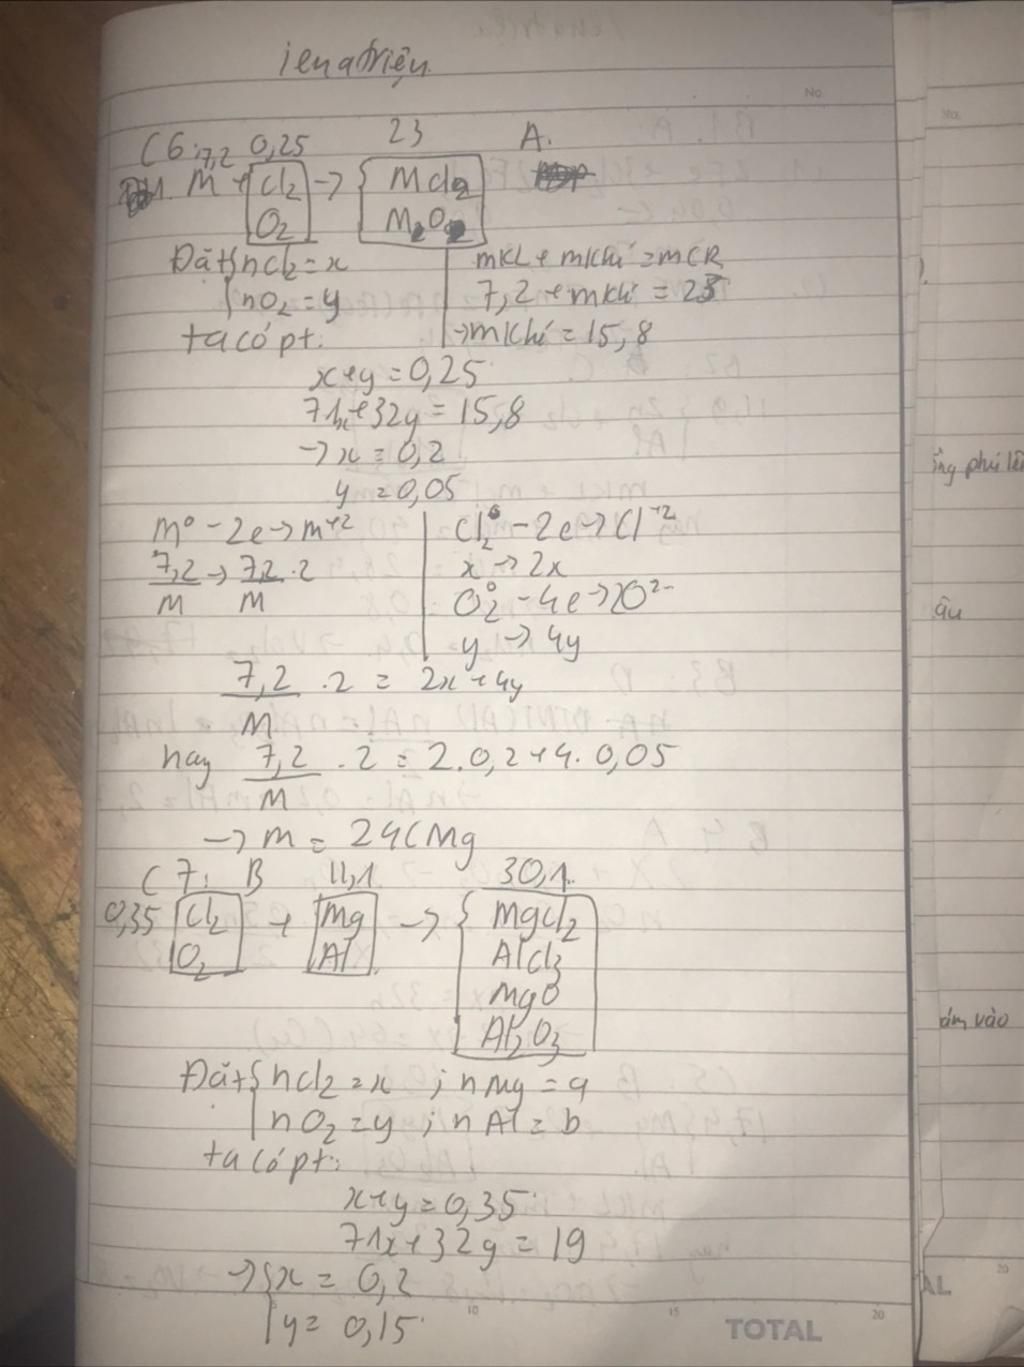 No
C6: 7,2 0,25 23 A.
M + Cl2 → { MCl2
O2 M2O2
Đặt { nCl2 = x
{ nO2 = y
ta có pt:
mKL + mkhí = mCR
7,2 + mkhí = 23
→ mKhí = 15,8
x+y = 0,25
71x + 32y = 15,8
→ x = 0,2
y = 0,05
M⁰ - 2e → M⁺²
7,2/M → 7,2/M . 2
Cl2⁰ - 2e → Cl⁻²
x → 2x
O2⁰ - 4e → 2O²⁻
y → 4y
7,2/M . 2 = 2x + 4y
hay 7,2/M . 2 = 2.0,2 + 4. 0,05
→ M = 24 (Mg
C7: B 11,1 30,1.
0,35 Cl2 + Mg → { MgCl2
O2 Al AlCl3
MgO
Al2O3
Đặt { nCl2 = x ; nMg = a
{ nO2 = y ; nAl = b
ta có pt:
x+y = 0,35
71x + 32y = 19
→ { x = 0,2
{ y = 0,15
10 15 20
TOTAL
No.
phú lên
âu
ám vào
20
AL